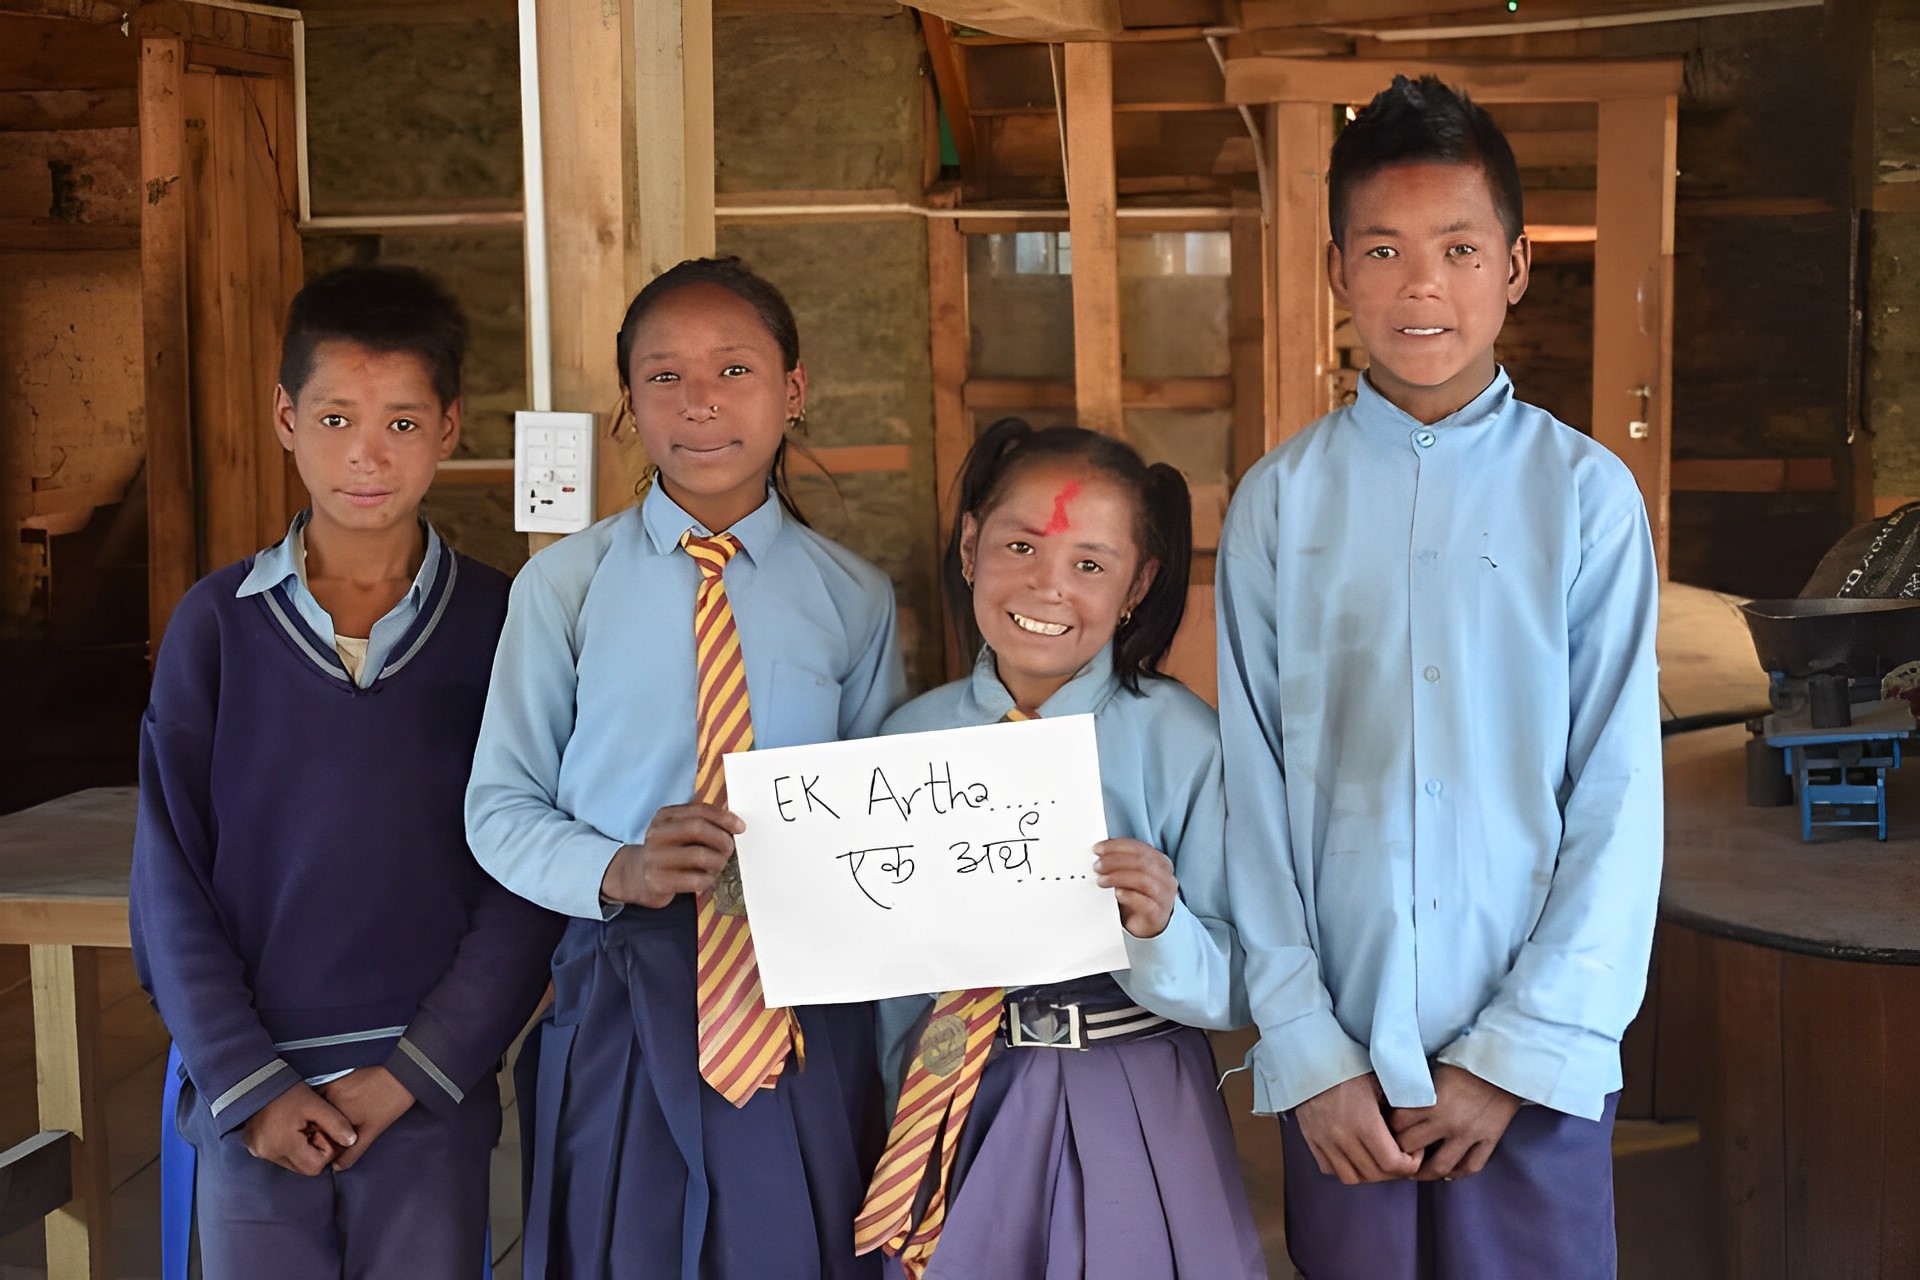 EK Artha.....
एक अर्थ.....